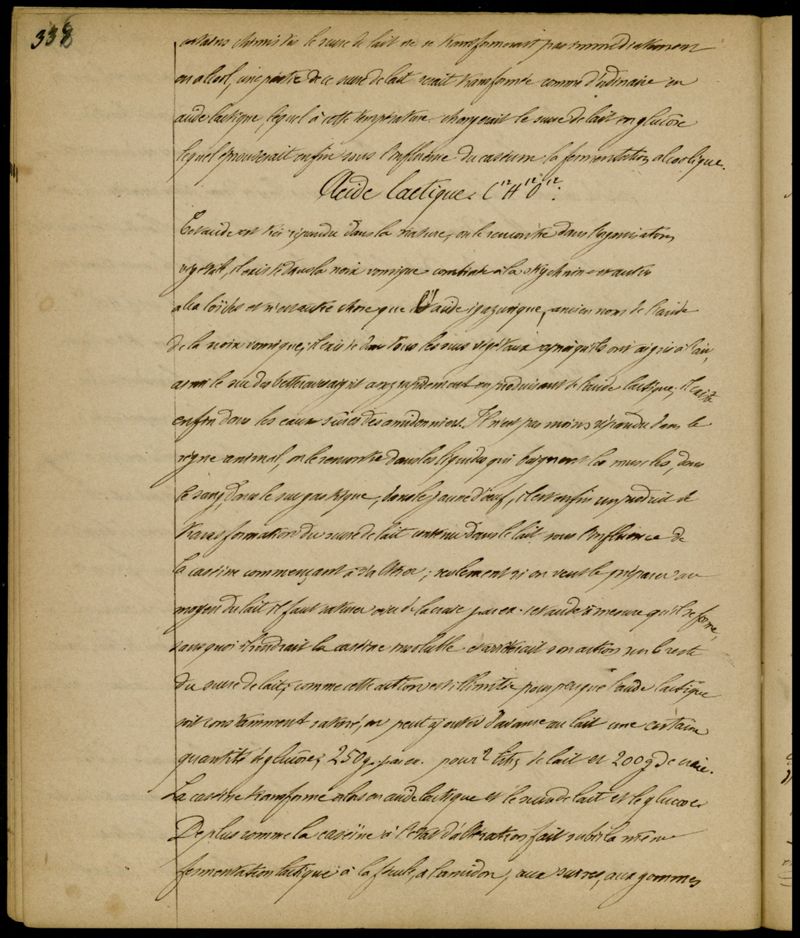 338
certains chimistes le sucre de lait ne se transformerait pas immédiatement
en alcool, une partie de ce sucre de lait serait transformée comme d'ordinaire en
acide lactique, lequel à cette température changerait le sucre de lait en glucose
lequel éprouverait enfin sous l'influence du caséum la fermentation alcoolique.
Acide lactique. C¹²H¹²O¹².
Cet acide est très répandu dans la nature, on le rencontre dans l'organisation
végétale, il existe dans la noix vomique combiné à la strychnine et autres
alcaloïdes et n'est autre chose que l'acide igazurique, ancien nom de l'acide
de la noix vomique; il existe dans tous les sucs végétaux qui ont aigri à l'air,
ainsi le suc des betteraves aigrit rapidement en produisant de l'acide lactique; il existe
enfin dans les eaux sûres des amidonniers. Il n'est pas moins répandu dans le
règne animal, on le rencontre dans les liquides qui baignent les muscles, dans
le sang, dans le suc gastrique, dans le jaune d'œuf, il est enfin un produit de
transformation du sucre de lait contenu dans le lait sous l'influence de
la caséine commençant à s'altérer; seulement si on veut le préparer au
moyen du lait il faut saturer avec de la craie par ex. cet acide à mesure qu'il se forme,
sans quoi il rendrait la caséine insoluble et arrêterait son action sur le reste
du sucre de lait; comme cette action est illimitée pourvu que l'acide lactique
soit constamment saturé, on peut ajouter d'avance au lait une certaine
quantité de glucose; 250g. par ex. pour 2 lit. de lait et 200g de craie.
La caséine transforme alors en acide lactique et le sucre de lait et le glucose.
De plus comme la caséine à l'état d'altération fait subir la même
fermentation lactique à la fécule, à l'amidon, aux sucres, aux gommes